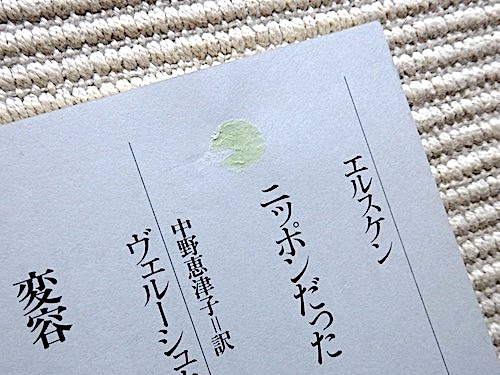 エルスケン
ニッポンだった
中野恵津子=訳
ヴェルーシュカ
変容